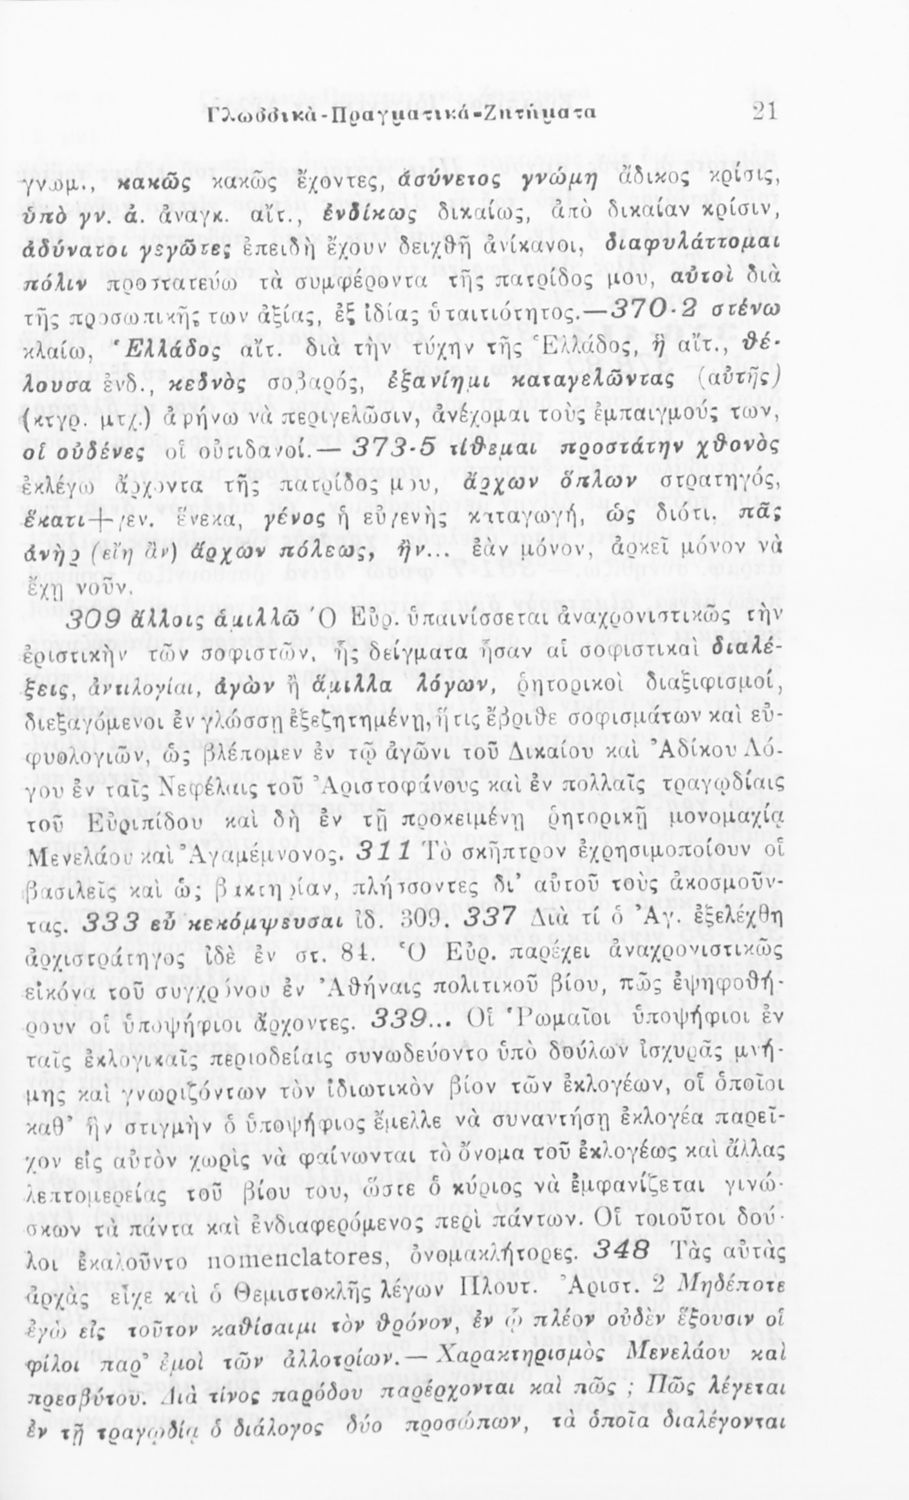 Γλωσσικὰ-Πραγματικά-Ζητήματα 21
γνωμ., κακῶς κακῶς ἔχοντες, ἀσύνετος γνώμη ἄδικος κρίσις,
ὑπὸ γν. ἀ. ἀναγκ. αἴτ., ἐνδίκως δικαίως, ἀπὸ δικαίαν κρίσιν,
ἀδύνατοι γεγῶτες ἐπειδὴ ἔχουν δειχθῆ ἀνίκανοι, διαφυλάττομαι
πόλιν προστατεύω τὰ συμφέροντα τῆς πατρίδος μου, αὐτοὶ διὰ
τῆς προσωπικῆς των ἀξίας, ἐξ ἰδίας ὑπαιτιότητος.—370-2 στένω
κλαίω, Ἑλλάδος αἴτ. διὰ τὴν τύχην τῆς Ἑλλάδος, ἢ αἴτ., θέ-
λουσα ἐνδ., κεδνὸς σοβαρός, ἐξανίημι καταγελῶντας (αὐτῆς)
(κτγρ. μτχ.) ἀφήνω νὰ περιγελῶσιν, ἀνέχομαι τοὺς ἐμπαιγμούς των,
οἱ οὐδένες οἱ οὐτιδανοί.— 373-5 τίθεμαι προστάτην χθονὸς
ἐκλέγω ἄρχοντα τῆς πατρίδος μου, ἄρχων ὅπλων στρατηγός,
ἕκατι+γεν. ἕνεκα, γένος ἡ εὐγενὴς καταγωγή, ὡς διότι, πᾶς
ἀνὴρ (εἴη ἂν) ἄρχων πόλεως, ἢν... ἐὰν μόνον, ἀρκεῖ μόνον νὰ
ἔχῃ νοῦν.
309 ἄλλοις ἁμιλλῶ Ὁ Εὐρ. ὑπαινίσσεται ἀναχρονιστικῶς τὴν
ἐριστικὴν τῶν σοφιστῶν, ἧς δείγματα ἦσαν αἱ σοφιστικαὶ διαλέ-
ξεις, ἀντιλογίαι, ἀγὼν ἢ ἅμιλλα λόγων, ῥητορικοὶ διαξιφισμοί,
διεξαγόμενοι ἐν γλώσσῃ ἐξεζητημένῃ, ἥτις ἔβριθε σοφισμάτων καὶ εὐ-
φυολογιῶν, ὡς βλέπομεν ἐν τῷ ἀγῶνι τοῦ Δικαίου καὶ Ἀδίκου Λό-
γου ἐν ταῖς Νεφέλαις τοῦ Ἀριστοφάνους καὶ ἐν πολλαῖς τραγῳδίαις
τοῦ Εὐριπίδου καὶ δὴ ἐν τῇ προκειμένῃ ῥητορικῇ μονομαχίᾳ
Μενελάου καὶ Ἀγαμέμνονος. 311 Τὸ σκῆπτρον ἐχρησιμοποίουν οἱ
βασιλεῖς καὶ ὡς βακτηρίαν, πλήττοντες δι' αὐτοῦ τοὺς ἀκοσμοῦν-
τας. 333 εὖ κεκόμψευσαι ἰδ. 309. 337 Διὰ τί ὁ Ἀγ. ἐξελέχθη
ἀρχιστράτηγος ἰδὲ ἐν στ. 84. Ὁ Εὐρ. παρέχει ἀναχρονιστικῶς
εἰκόνα τοῦ συγχρόνου ἐν Ἀθήναις πολιτικοῦ βίου, πῶς ἐψηφοθή-
ρουν οἱ ὑποψήφιοι ἄρχοντες. 339... Οἱ Ῥωμαῖοι ὑποψήφιοι ἐν
ταῖς ἐκλογικαῖς περιοδείαις συνωδεύοντο ὑπὸ δούλων ἰσχυρᾶς μνή-
μης καὶ γνωριζόντων τὸν ἰδιωτικὸν βίον τῶν ἐκλογέων, οἱ ὁποῖοι
καθ' ἣν στιγμὴν ὁ ὑποψήφιος ἔμελλε νὰ συναντήσῃ ἐκλογέα παρεῖ-
χον εἰς αὐτὸν χωρὶς νὰ φαίνωνται τὸ ὄνομα τοῦ ἐκλογέως καὶ ἄλλας
λεπτομερείας τοῦ βίου του, ὥστε ὁ κύριος νὰ ἐμφανίζεται γινώ-
σκων τὰ πάντα καὶ ἐνδιαφερόμενος περὶ πάντων. Οἱ τοιοῦτοι δοῦ-
λοι ἐκαλοῦντο nomenclatores, ὀνομακλήτορες. 348 Τὰς αὐτὰς
ἀρχὰς εἶχε καὶ ὁ Θεμιστοκλῆς λέγων Πλουτ. Ἀριστ. 2 Μηδέποτε
ἐγὼ εἰς τοῦτον καθίσαιμι τὸν θρόνον, ἐν ᾧ πλέον οὐδὲν ἕξουσιν οἱ
φίλοι παρ' ἐμοὶ τῶν ἀλλοτρίων.— Χαρακτηρισμὸς Μενελάου καὶ
πρεσβύτου. Διὰ τίνος παρόδου παρέρχονται καὶ πῶς ; Πῶς λέγεται
ἐν τῇ τραγῳδίᾳ ὁ διάλογος δύο προσώπων, τὰ ὁποῖα διαλέγονται